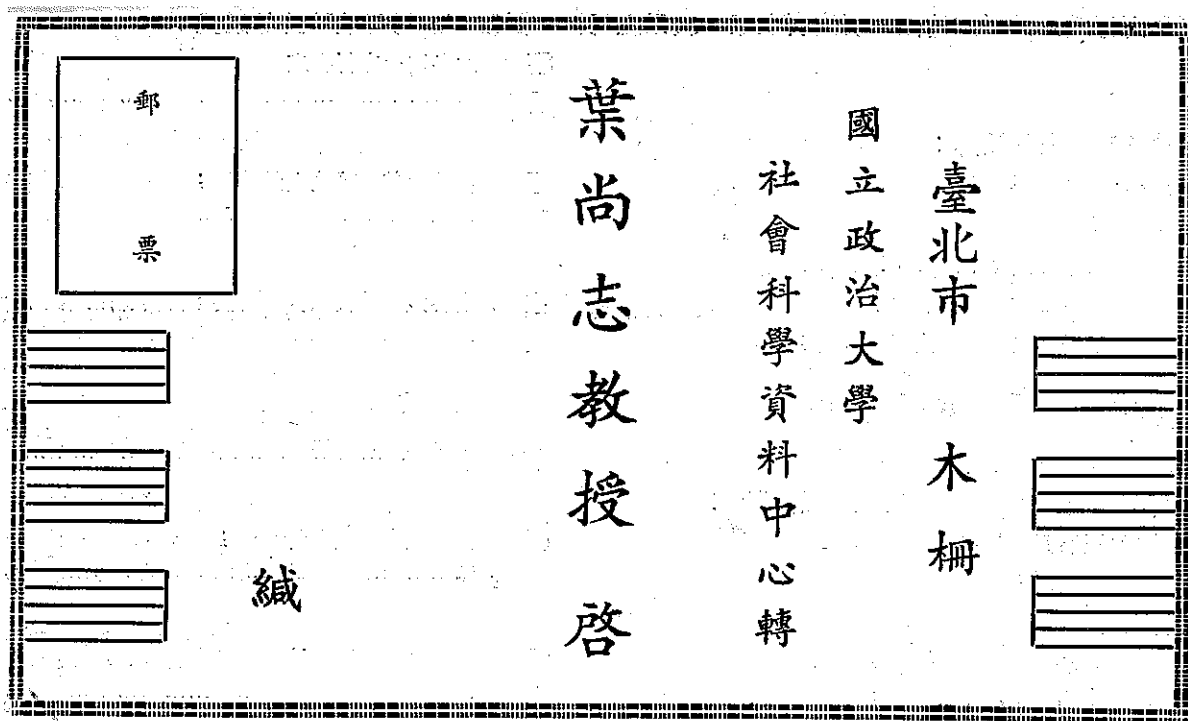 臺北市 木柵
國立政治大學
社會科學資料中心轉
葉尚志教授 啓
緘
郵票